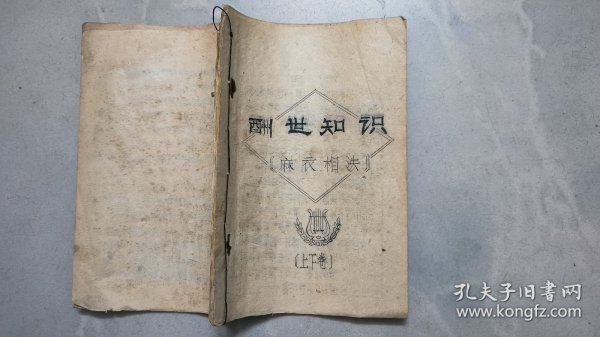 醒世知识
〔麻衣相法〕
〔上下卷〕
孔夫子旧書网
www.kongfz.com